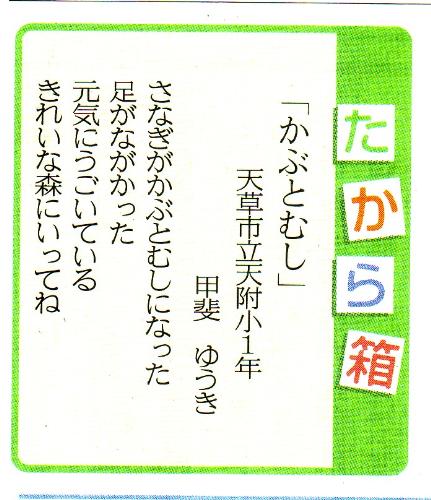 たから箱
「かぶとむし」
天草市立天附小1年
甲斐　ゆうき
さなぎがかぶとむしになった
足がながかった
元気にうごいている
きれいな森にいってね